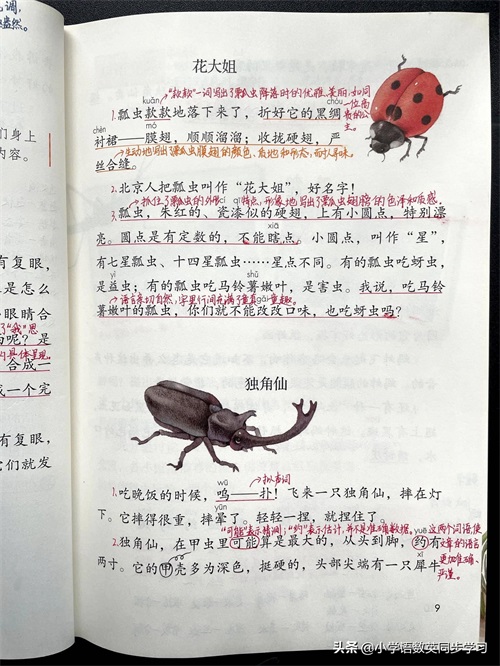 花大姐
"款款"一词写出了瓢虫降落时的优雅、美丽,如同一位高贵的公主。
kuǎn
chóu
1.瓢虫款款地落下来了,折好它的黑绸
chèn
mó
衬裙——膜翅,顺顺溜溜;收拢硬翅,严
生动地写出瓢虫膜翅的颜色、质地和形态,富有人情味。
丝合缝。
2.北京人把瓢虫叫作"花大姐",好名字!
抓住了瓢虫的外形特点,形象地写出了瓢虫翅膀的色泽和质感。
cí
qī
3.瓢虫,朱红的、瓷漆似的硬翅,上有小圆点,特别漂
xiā
亮。圆点是有定数的,不能瞎点。小圆点,叫作"星",
有七星瓢虫、十四星瓢虫……星点不同。有的瓢虫吃蚜虫,
yì
shǔ
是益虫;有的瓢虫吃马铃薯嫩叶,是害虫。我说,吃马铃
语言亲切自然,字里行间充满了童真童趣。
gǎi
薯嫩叶的瓢虫,你们就不能改改口味,也吃蚜虫吗?
独角仙
wū
拟声词
1.吃晚饭的时候,呜——扑!飞来一只独角仙,摔在灯
yūn
下。它摔得很重,摔晕了。轻轻一捏,就捏住了。
"可能"表示猜测;"约"表示估计,并不是准确数据。
这两个词语,使文章的语言更加准确、严谨。
yuē
2.独角仙,在甲虫里可能算是最大的,从头到脚,约有
xī
两寸。它的甲壳多为深色,挺硬的,头部尖端有一只犀牛
9
们身上
内容。
有复眼,
是怎么
眼睛合
呢?是
合成一
一个完
有复眼,
们就发
头条 @小学语数英同步学习